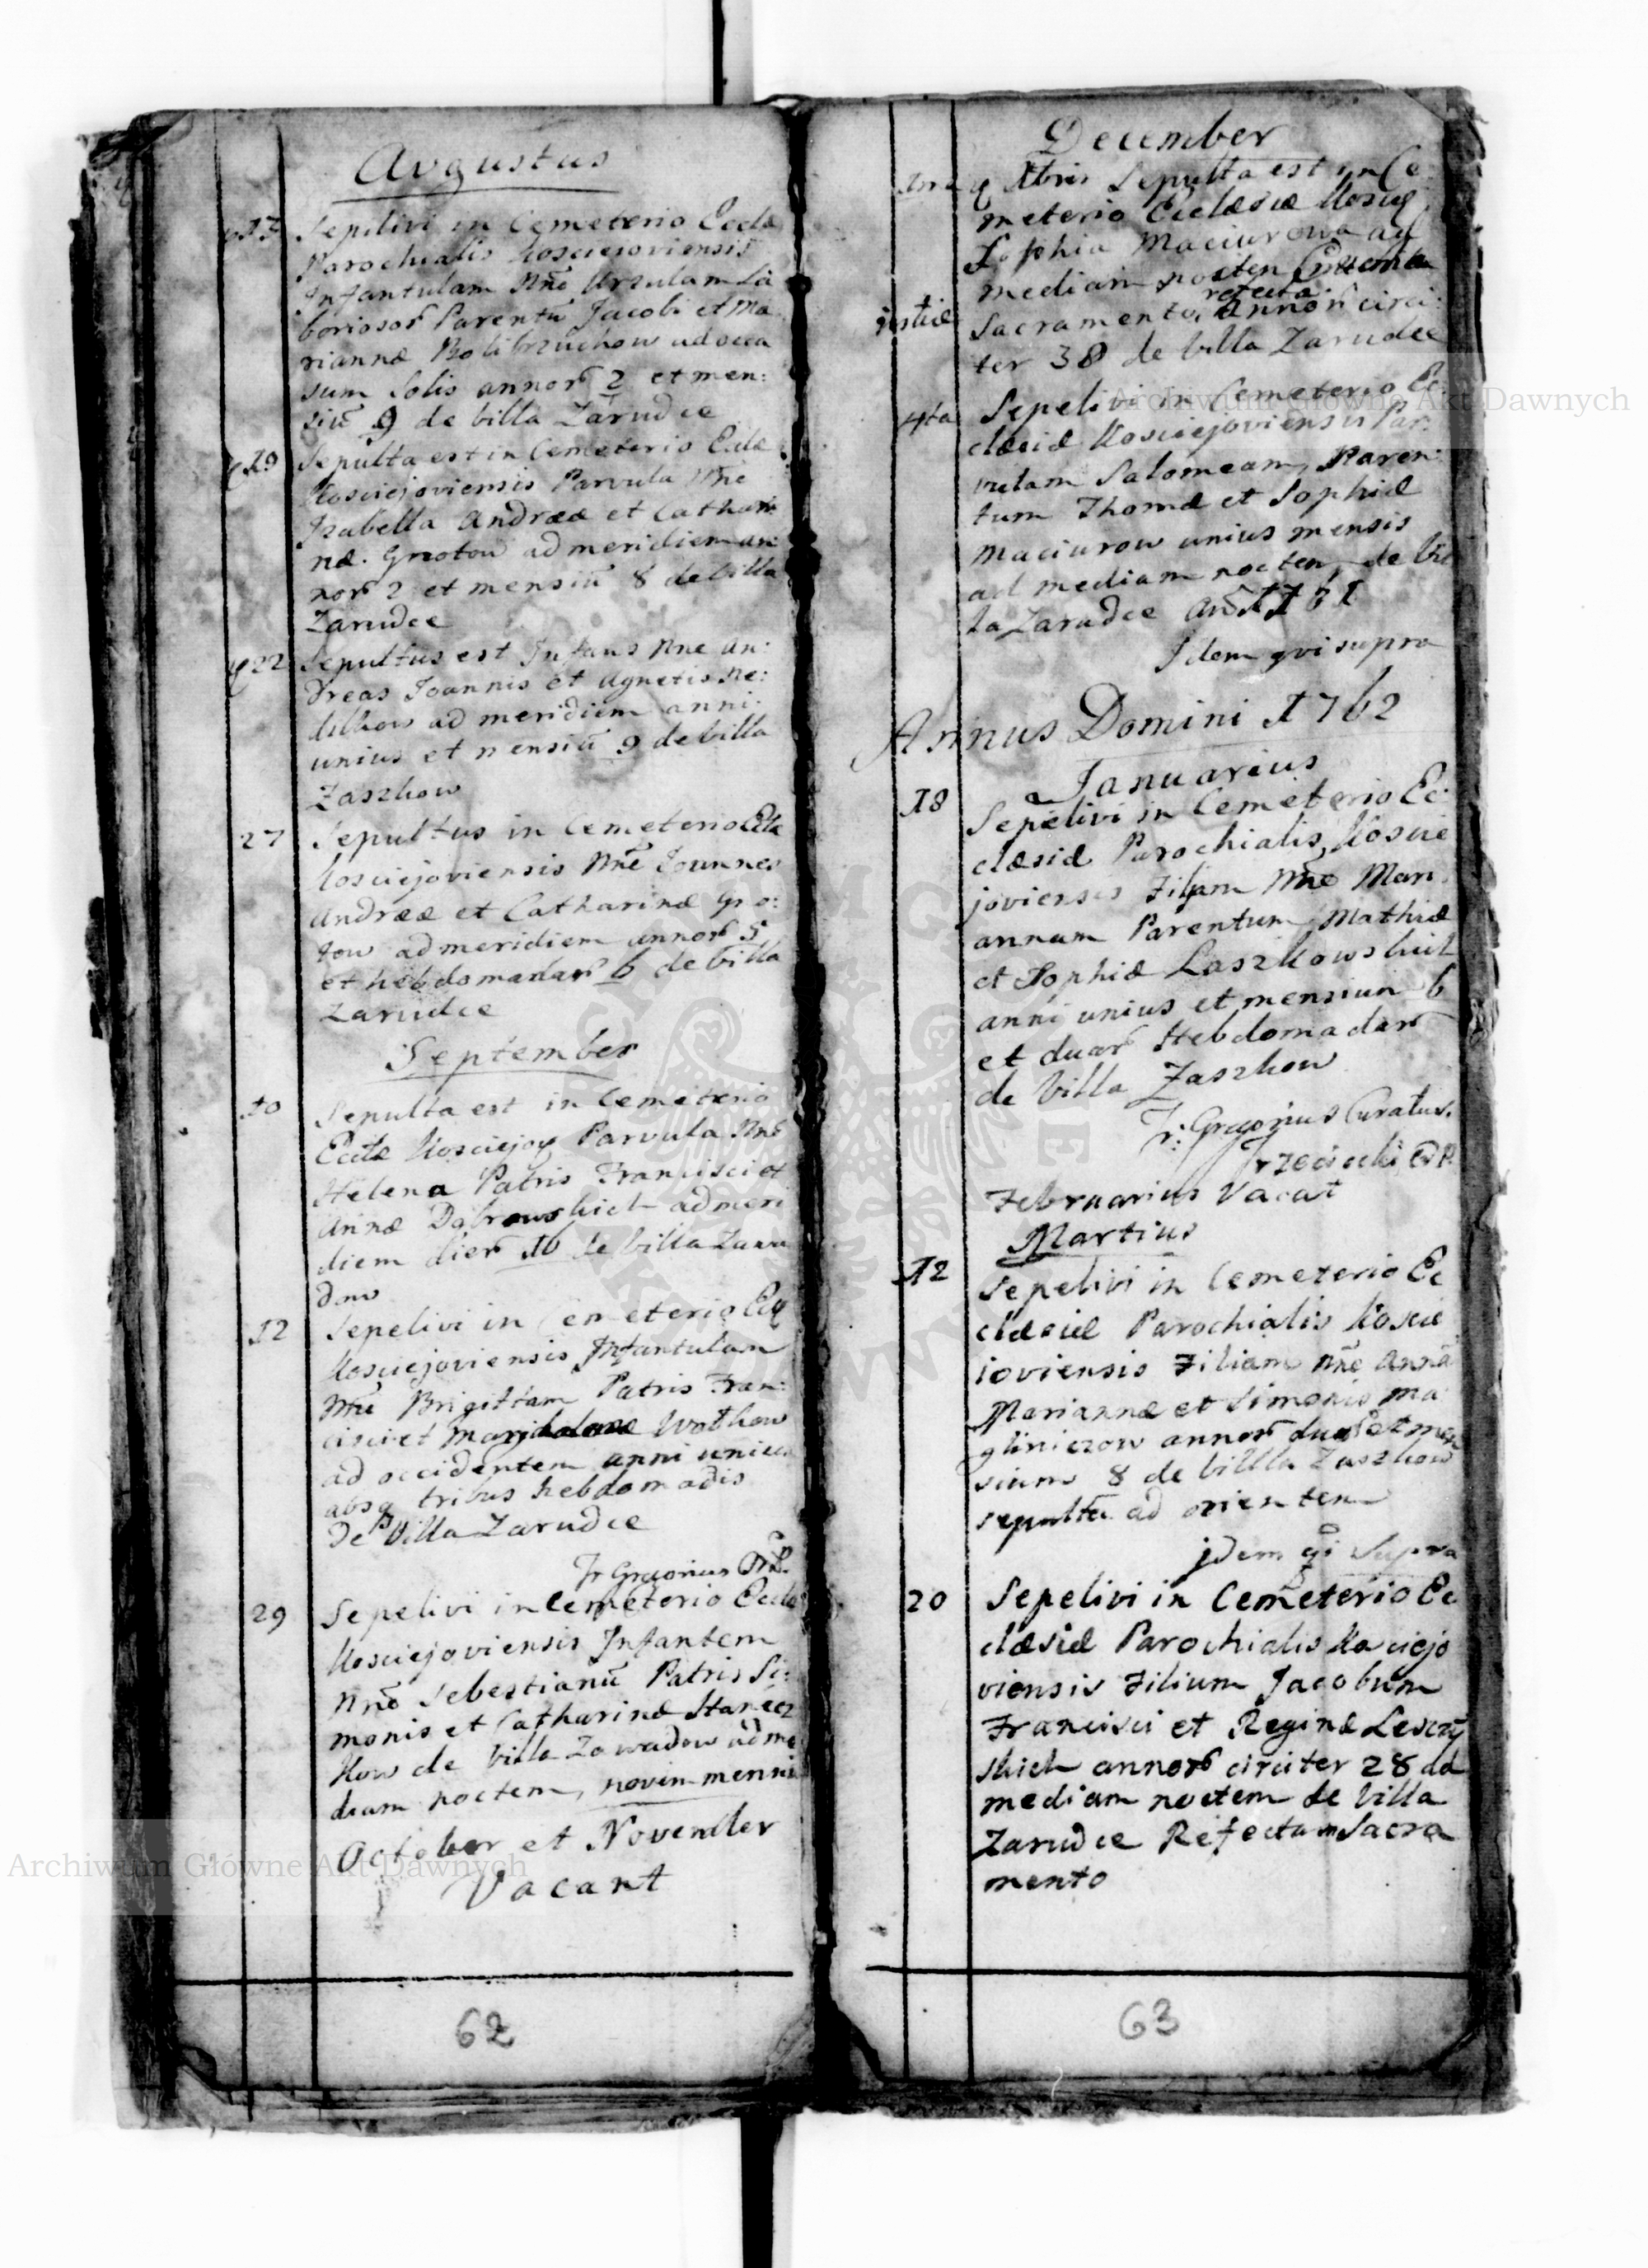 Augustus
17 Sepelivi in Cemeterio Eccla
Parochialis Kosciejoviensis
Infantulam Nnē Urzulam La
boriosor Parentū Jacobi et Ma
riannæ Bolibrzuchow ad occa
sum Solis annor 2 et men:
siū 9 de billa Zarudce
19 Sepulta est in Cemeterio Eccle
Kosciejoviensis Parvula Nne
Izabella Andreæ et Cathari
næ Gnotow ad meridiem an:
nor 2 et mensiū 8 de billa
Zarudce
22 Sepultus est Infans Nne An:
dreas Joannis et Agnetis
ad meridiem anni
unius et mensiū 9 de billa
Zaszkow
27 Sepultus in Cemeterio Eccle
Kosciejoviensis Nnē Joannes
Andreæ et Catharinæ Gno:
tow ad meridiem annor 5
et hebdomadar 6 de billa
Zarudce
September
10 Sepulta est in Cemeterio
Eccle Kosciejov Parvula Nnē
Helena Patris Francisci et
Annæ Dabrowskich ad meri
diem dier 16 de billa Zawa
dow
12 Sepelivi in Cemeterio
Kosciejoviensis Infantulam
Nnē Brigittam Patris Fran:
cisci et Wothow
ad occidentem anni unius
absq tribus hebdomadis
De Villa Zarudce
Fr Gregorius
29 Sepelivi in Cemeterio Eccle
Kosciejoviensis Infantem
Nnē Sebestianū Patris Si:
monis et Catharinæ Staniez
kow de billa Zawadow ad me
diam noctem, novem mensiū
October et November
Vacant
62
December
Xbris Sepulta est in Ce
meterio Ecclæsiæ
Sophia Maciurowa ad
mediam noctem
refecta
Sacramento, Annor circi:
ter 38 de billa Zarudce
4ta Sepelivi in Cemeterio Ec
clæsiæ Kosciejoviensis Par:
vulam Salomeam, Paren:
tum Thomæ et Sophiæ
Maciurow unius mensis
ad mediam noctem, de bil
la Zarudce 1761
Idem qvi supra
Annus Domini 1762
Januarius
18 Sepelivi in Cemeterio Ec:
clæsiæ Parochialis Koscie
joviensis Filiam Nnē Mari
annam Parentum Mathiæ
et Sophiæ Laszkowskich
anni unius et mensium 6
et duar Hebdomadar
de billa Zaszkow
Fr: Gregorius Curatus
Februarius Vacat
Martius
12 Sepelivi in Cemeterio Ec
clæsiæ Parochialis Koscie
ioviensis Filiam Nnē Annā
Mariannæ et Simonis Ma
gliniczow annor duar et men
sium 8 de billa Zaszkow
sepulta ad orientem
jdem qi Supra
20 Sepelivi in Cemeterio Ec
clæsiæ Parochialis Kosciejo
viensis Filium Jacobum
Francisci et Reginæ
annor circiter 28 ad
mediam noctem de billa
Zarudce Refectam Sacra
mento
63
Archiwum Główne Akt Dawnych
Archiwum Główne Akt Dawnych